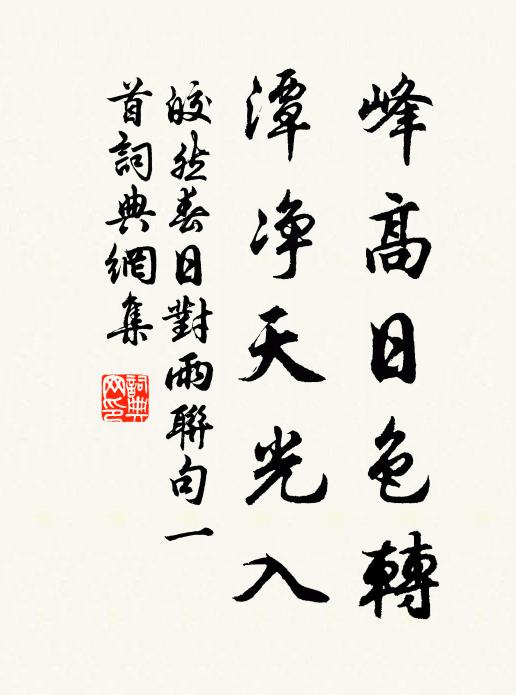 峰高日色轉
潭净天光入
皎然春日對雨聯句一
首詞典網集
詞典
网印